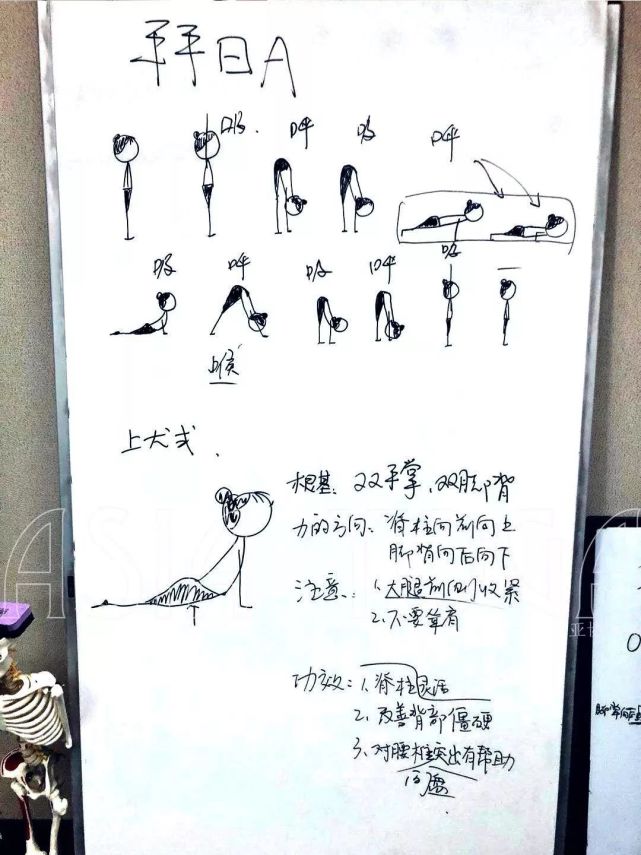 拜日A
吸 呼 吸 呼
吸 呼 吸 呼 吸
上犬式
根基: 双手掌、双脚背
力的方向: 脊柱向前向上
脚背向后向下
注意: 1、大腿前侧收紧
2、不要耸肩
功效: 1、脊柱灵活
2、改善背部僵硬
3、对腰椎突出有帮助
间盘